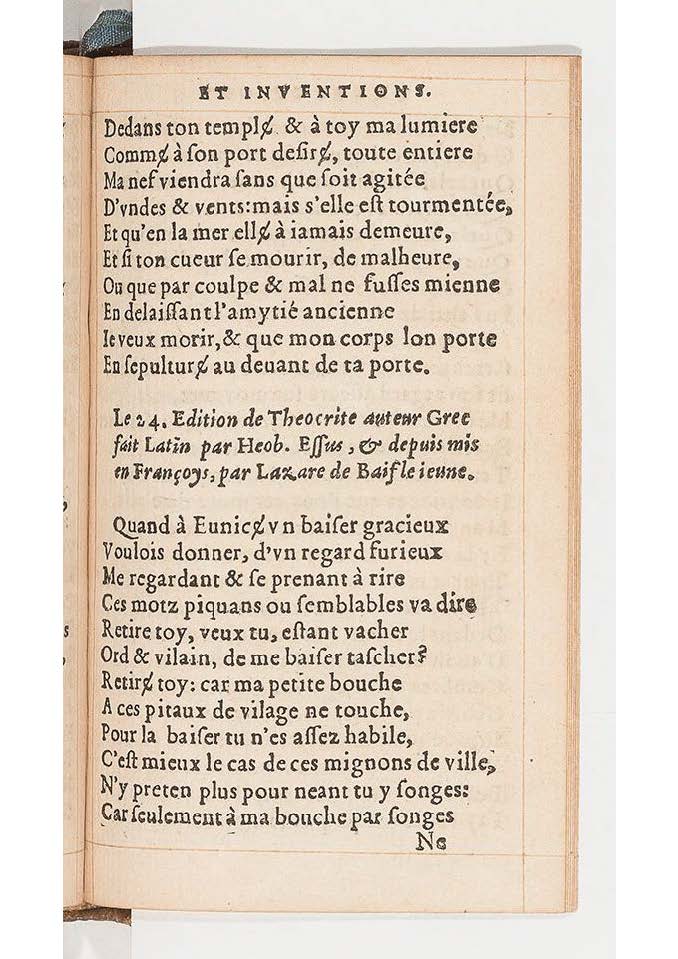 ET INVENTIONS.
Dedans ton templɇ & à toy ma lumiere
Commɇ à ſon port deſirɇ, toute entiere
Ma nef viendra ſans que ſoit agitée
D'vndes & vents: mais s'elle eſt tourmentée,
Et qu'en la mer ellɇ à iamais demeure,
Et ſi ton cueur ſe mourir, de malheure,
Ou que par coulpe & mal ne fuſſes mienne
En delaiſſant l'amytié ancienne
Ie veux morir, & que mon corps lon porte
En ſepulturɇ au deuant de ta porte.
Le 24. Edition de Theocrite auteur Grec
fait Latin par Heob. Eſſus, & depuis mis
en Françoys, par Lazare de Baif le ieune.
Quand à Eunicɇ vn baiſer gracieux
Voulois donner, d'vn regard furieux
Me regardant & ſe prenant à rire
Ces motz piquans ou ſemblables va dire
Retire toy, veux tu, eſtant vacher
Ord & vilain, de me baiſer taſcher?
Retirɇ toy: car ma petite bouche
A ces pitaux de vilage ne touche,
Pour la baiſer tu n'es aſſez habile,
C'eſt mieux le cas de ces mignons de ville,
N'y preten plus pour neant tu y ſonges:
Car ſeulement à ma bouche par ſonges
Ne